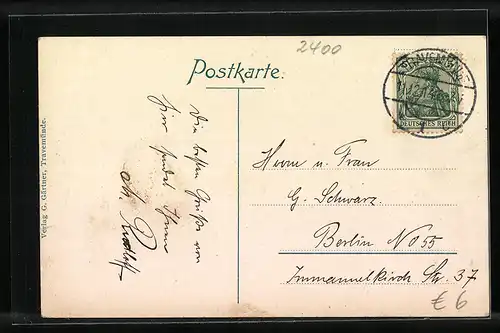 2400
Postkarte.
TRAVEMÜNDE
DEUTSCHES REICH
Die besten Grüße von
hier sendet Ihnen
Rudloff
Herrn u. Frau
G. Schwarz
Berlin NO 55
Immanuelkirch Str. 37
€ 6
Verlag G. Gärtner, Travemünde.